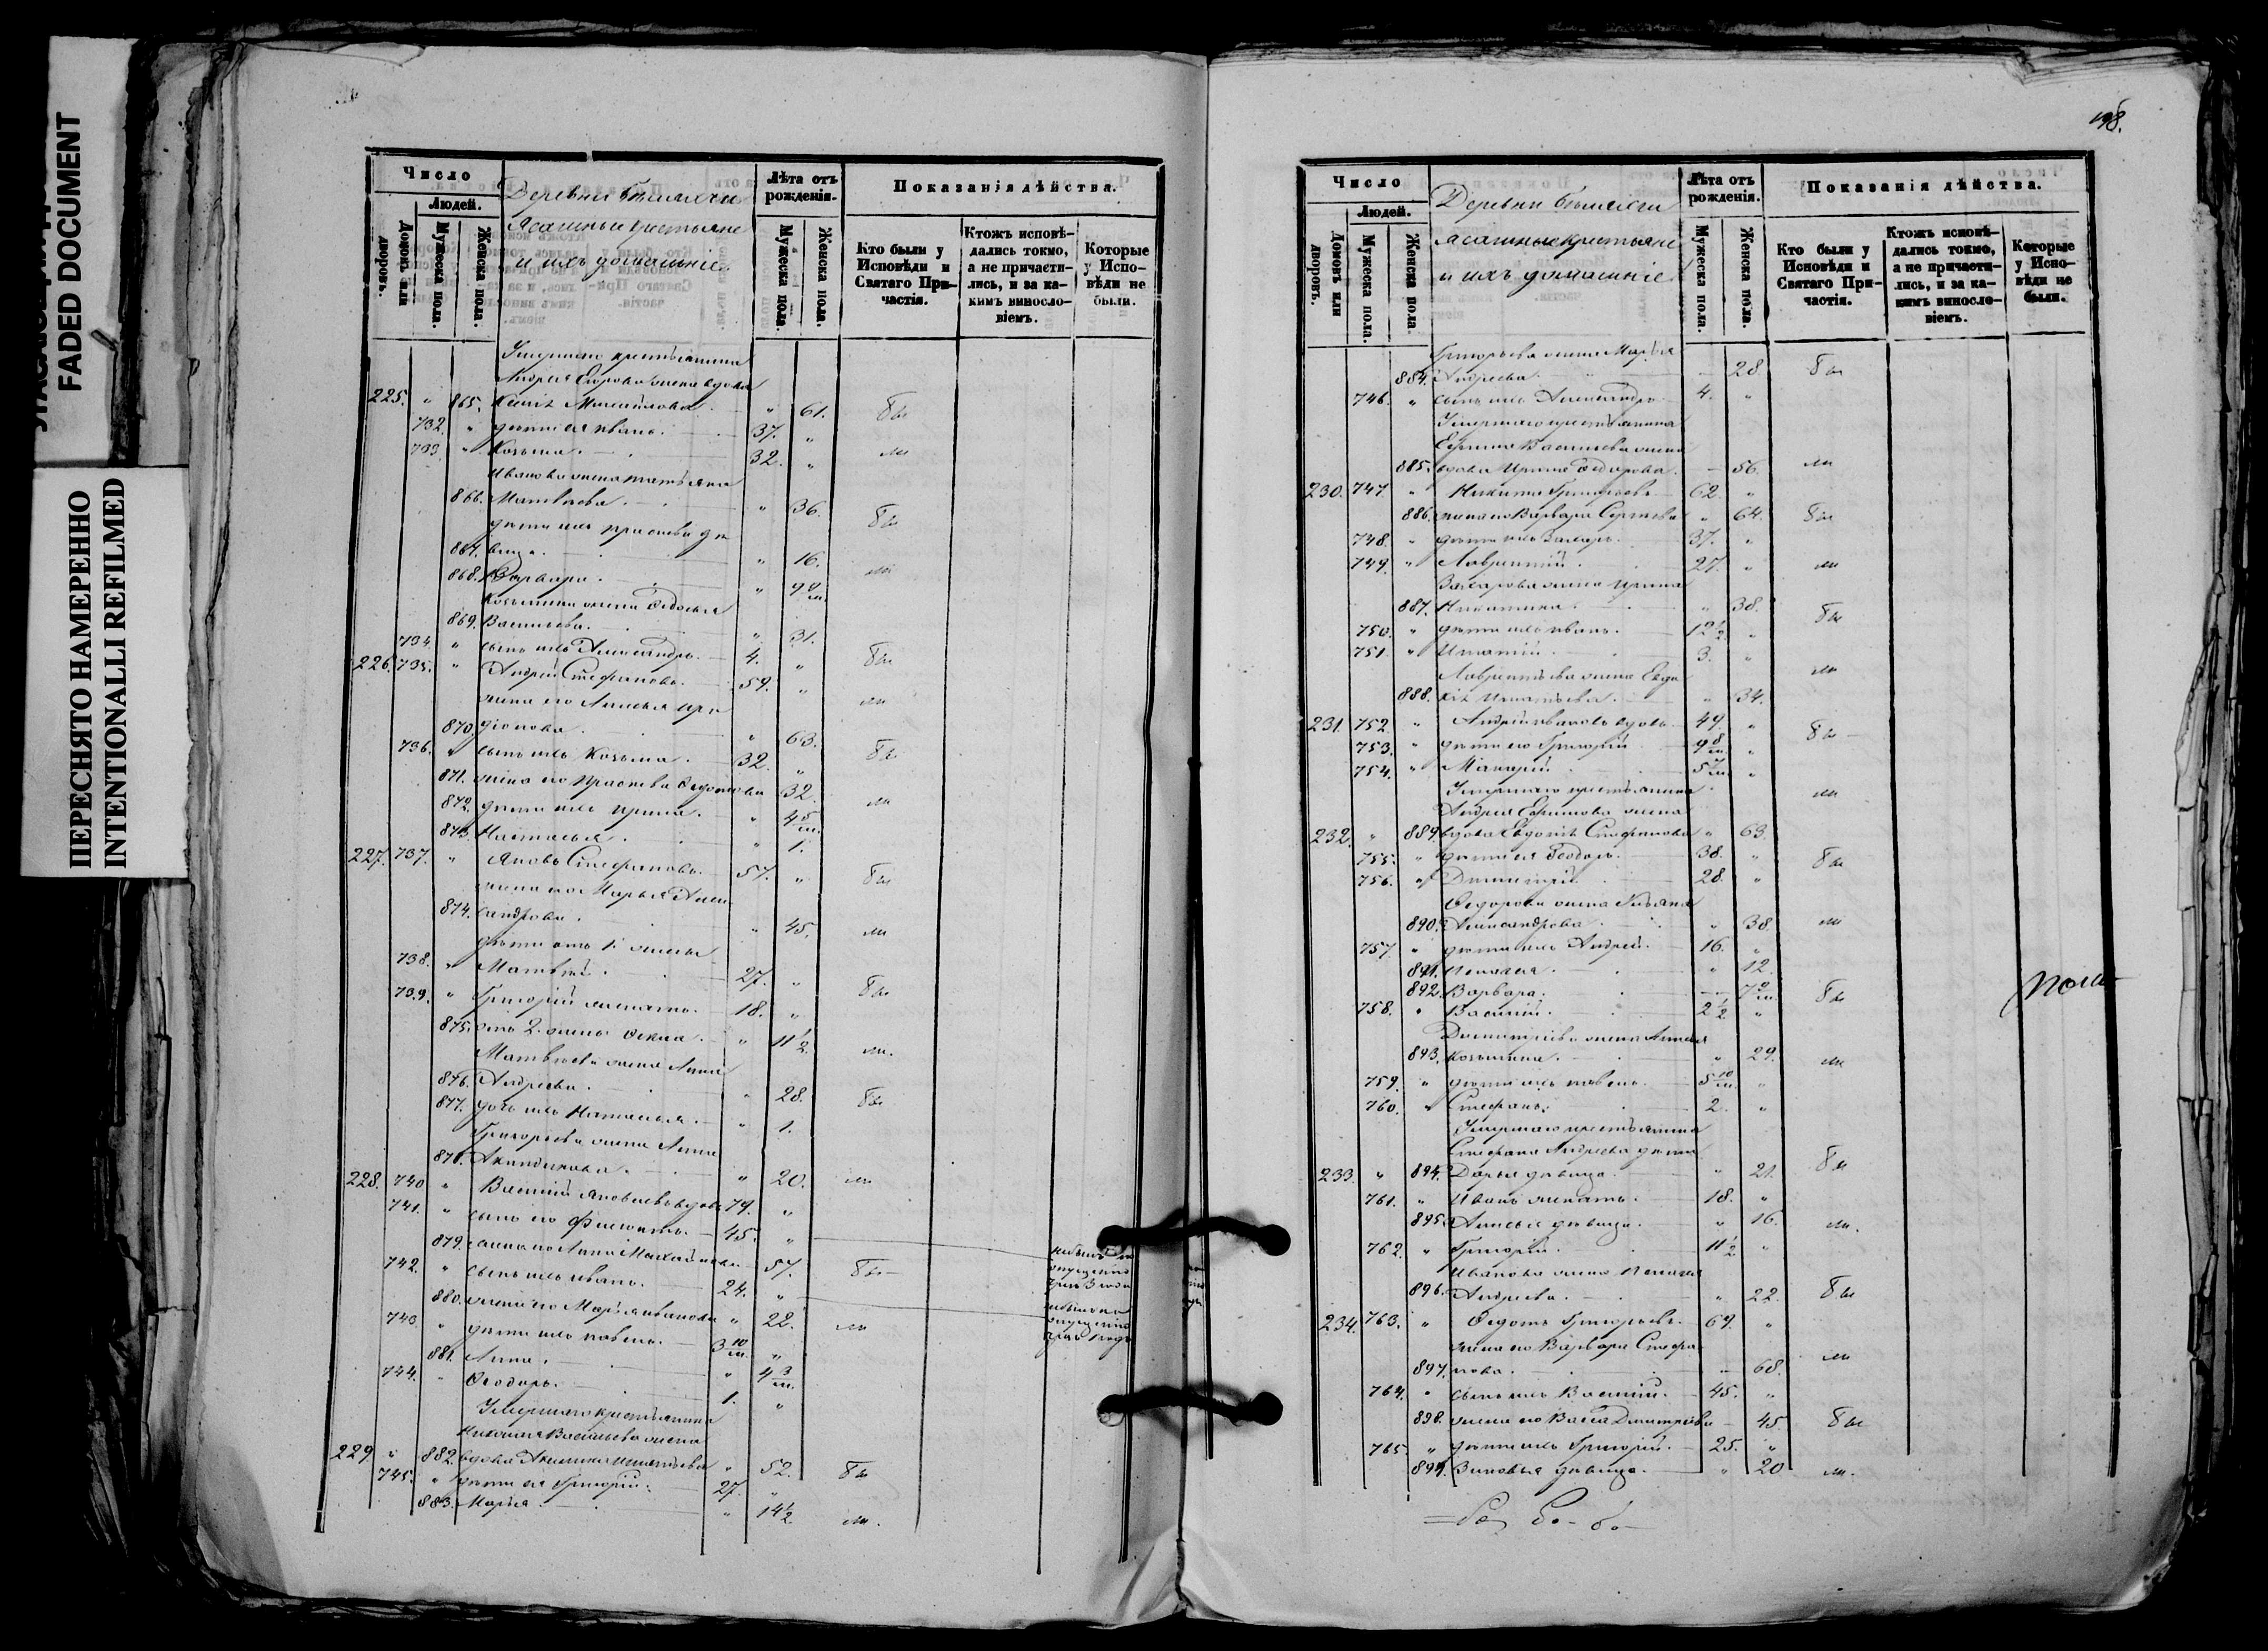 FADED DOCUMENT
ПЕРЕСНЯТО НАМЕРЕННО
INTENTIONALLI REFILMED
Число
Людей.
Домовъ или дворовъ.
Мужеска пола.
Женска пола.
Деревни
Ясашные крестьяне
и ихъ домашніе
Лѣта отъ рожденія.
Мужеска пола.
Женска пола.
Показанія дѣйства.
Кто были у Исповѣди и Святаго При-частія.
Ктожъ исповѣ-дались токмо, а не причасти-лись, и за ка-кимъ винослο-віемъ.
Которые у Испо-вѣди не были.
Умершаго крестьянина
Андрея Егорова жена вдова
225. " 865. Михайлова. " 61. бы
732. " дѣти ея Иванъ. 37. "
733. " Козьма. 32. " ли
Иванова жена Татьяна
866. Матвѣева. " 36. бы
дѣти ихъ Прасковья дѣ
867. вица. " 16.
868. Варвара. " ли
Козьмина жена Ѳедосья
869. Васильева. " 31.
734. " сынъ ихъ Александръ. 4. " бы
226. 735. " Андрей Стефановъ. 59. "
жена его Ири ли
870. діонова. " 63.
736. " сынъ ихъ Козьма. 32. " бы
871. жена его Прасковья 32.
872. дѣти ихъ Ирина. " ли
873. Настасья. " 1.
227. 737. " Яковъ Стефановъ. 57. "
жена его Марья Алек бы
874. сандрова. " 45.
дѣти отъ 1й жены ли
738. " Матвѣй. 27. "
739. " Григорій женатъ. 18. " бы
875. отъ 2. жены Ѳекла. " 11 1/2
Матвѣева жена Анна ли.
876. Андреева. " 28.
877. дочь ихъ Наталья. " 1. бы
Григорьева жена Анна
878. Акиндинова. " 20.
228. 740 " Василій Яковлевъ вдовъ 79. " ли
741. " сынъ его 45. "
879. жена его Анна Михайлова 57.
742. " сынъ ихъ Иванъ. 24. " бы
880. жена его Марья Иванова " 22.
743. " дѣти ихъ Павелъ. 3 10/м. " ли
881. Анна. " 4 3/м.
744. " Ѳеодоръ. 1. "
Умершаго крестьянина
Николая Васильева жена
229 " 882. вдова Акилина Игнатьева " 52. бы
745. " дѣти ея Григорій. 27. "
883. Марья. " 14 1/2 ли.
198.
Число
Людей.
Домовъ или дворовъ.
Мужеска пола.
Женска пола.
Деревни
ясашные крестьяне
и ихъ домашніе
Лѣта отъ рожденія.
Мужеска пола.
Женска пола.
Показанія дѣйства.
Кто были у Исповѣди и Святаго При-частія.
Ктожъ исповѣ-дались токмо, а не причасти-лись, и за ка-кимъ винослο-віемъ.
Которые у Испо-вѣди не были.
Григорьева жена Марья
884. Андреева. 28. бы
746. " сынъ ихъ Александръ 4. "
Умершаго крестьянина
Васильева жена
885. вдова Ирина Ѳедорова. 56. ли
230. 747. " Никита Григорьевъ 62. "
886. жена его Варвара Сергѣева " 64. бы
748. " дѣти ихъ Захаръ. 37. "
749. " Лаврентій. 27. " ли
Захарова жена Ирина
887. Никитина. " 38.
750. " дѣти ихъ Иванъ. 12 1/2 " бы
751. " Игнатій. 3. "
Лаврентьева жена Евдо ли
888. кія Игнатьева. " 34.
231. 752. " Андрей Ивановъ вдовъ 49. " бы
753. " дѣти его Григорій 9 8/м. "
754. " Макарій. 5 7/м. "
Умершаго крестьянина ли
Андрея Ефимова жена
232. " 889. вдова Евдокія Стефанова " 63.
755. " дѣти ея Ѳеодоръ. 38. " бы
756. " Димитрій. 28. "
Ѳедорова жена Ульяна
890. Александрова " 38. ли
757. " дѣти ихъ Андрей. 16. "
891. Пелагея. " 12.
892. Варвара. бы
758. " Василій. 2 1/2 "
Димитріева жена
893. Козьмина. " 29. ли
759. " дѣти ихъ Павелъ. 5 10/м. "
760. " Стефанъ. 2. "
Умершаго крестьянина
Стефана Андреева дѣти
233. " 894. Дарья дѣвица. " 21. бы
761. " Иванъ женатъ. 18. "
895. дѣвица. " 16. ли.
762. " Григорій. 11 1/2 "
Иванова жена Пелагея
896. Андреева. " 22. бы
234. 763. " Ѳедотъ Григорьевъ. 69. "
жена его Варвара Стефа ли
897. нова. " 68.
764. " сынъ ихъ Василій. 45. "
898. жена его Васса Димитріева 45 бы
765 " дѣти ихъ Григорій. 25. "
899. Зиновья дѣвица. " 20 ли.